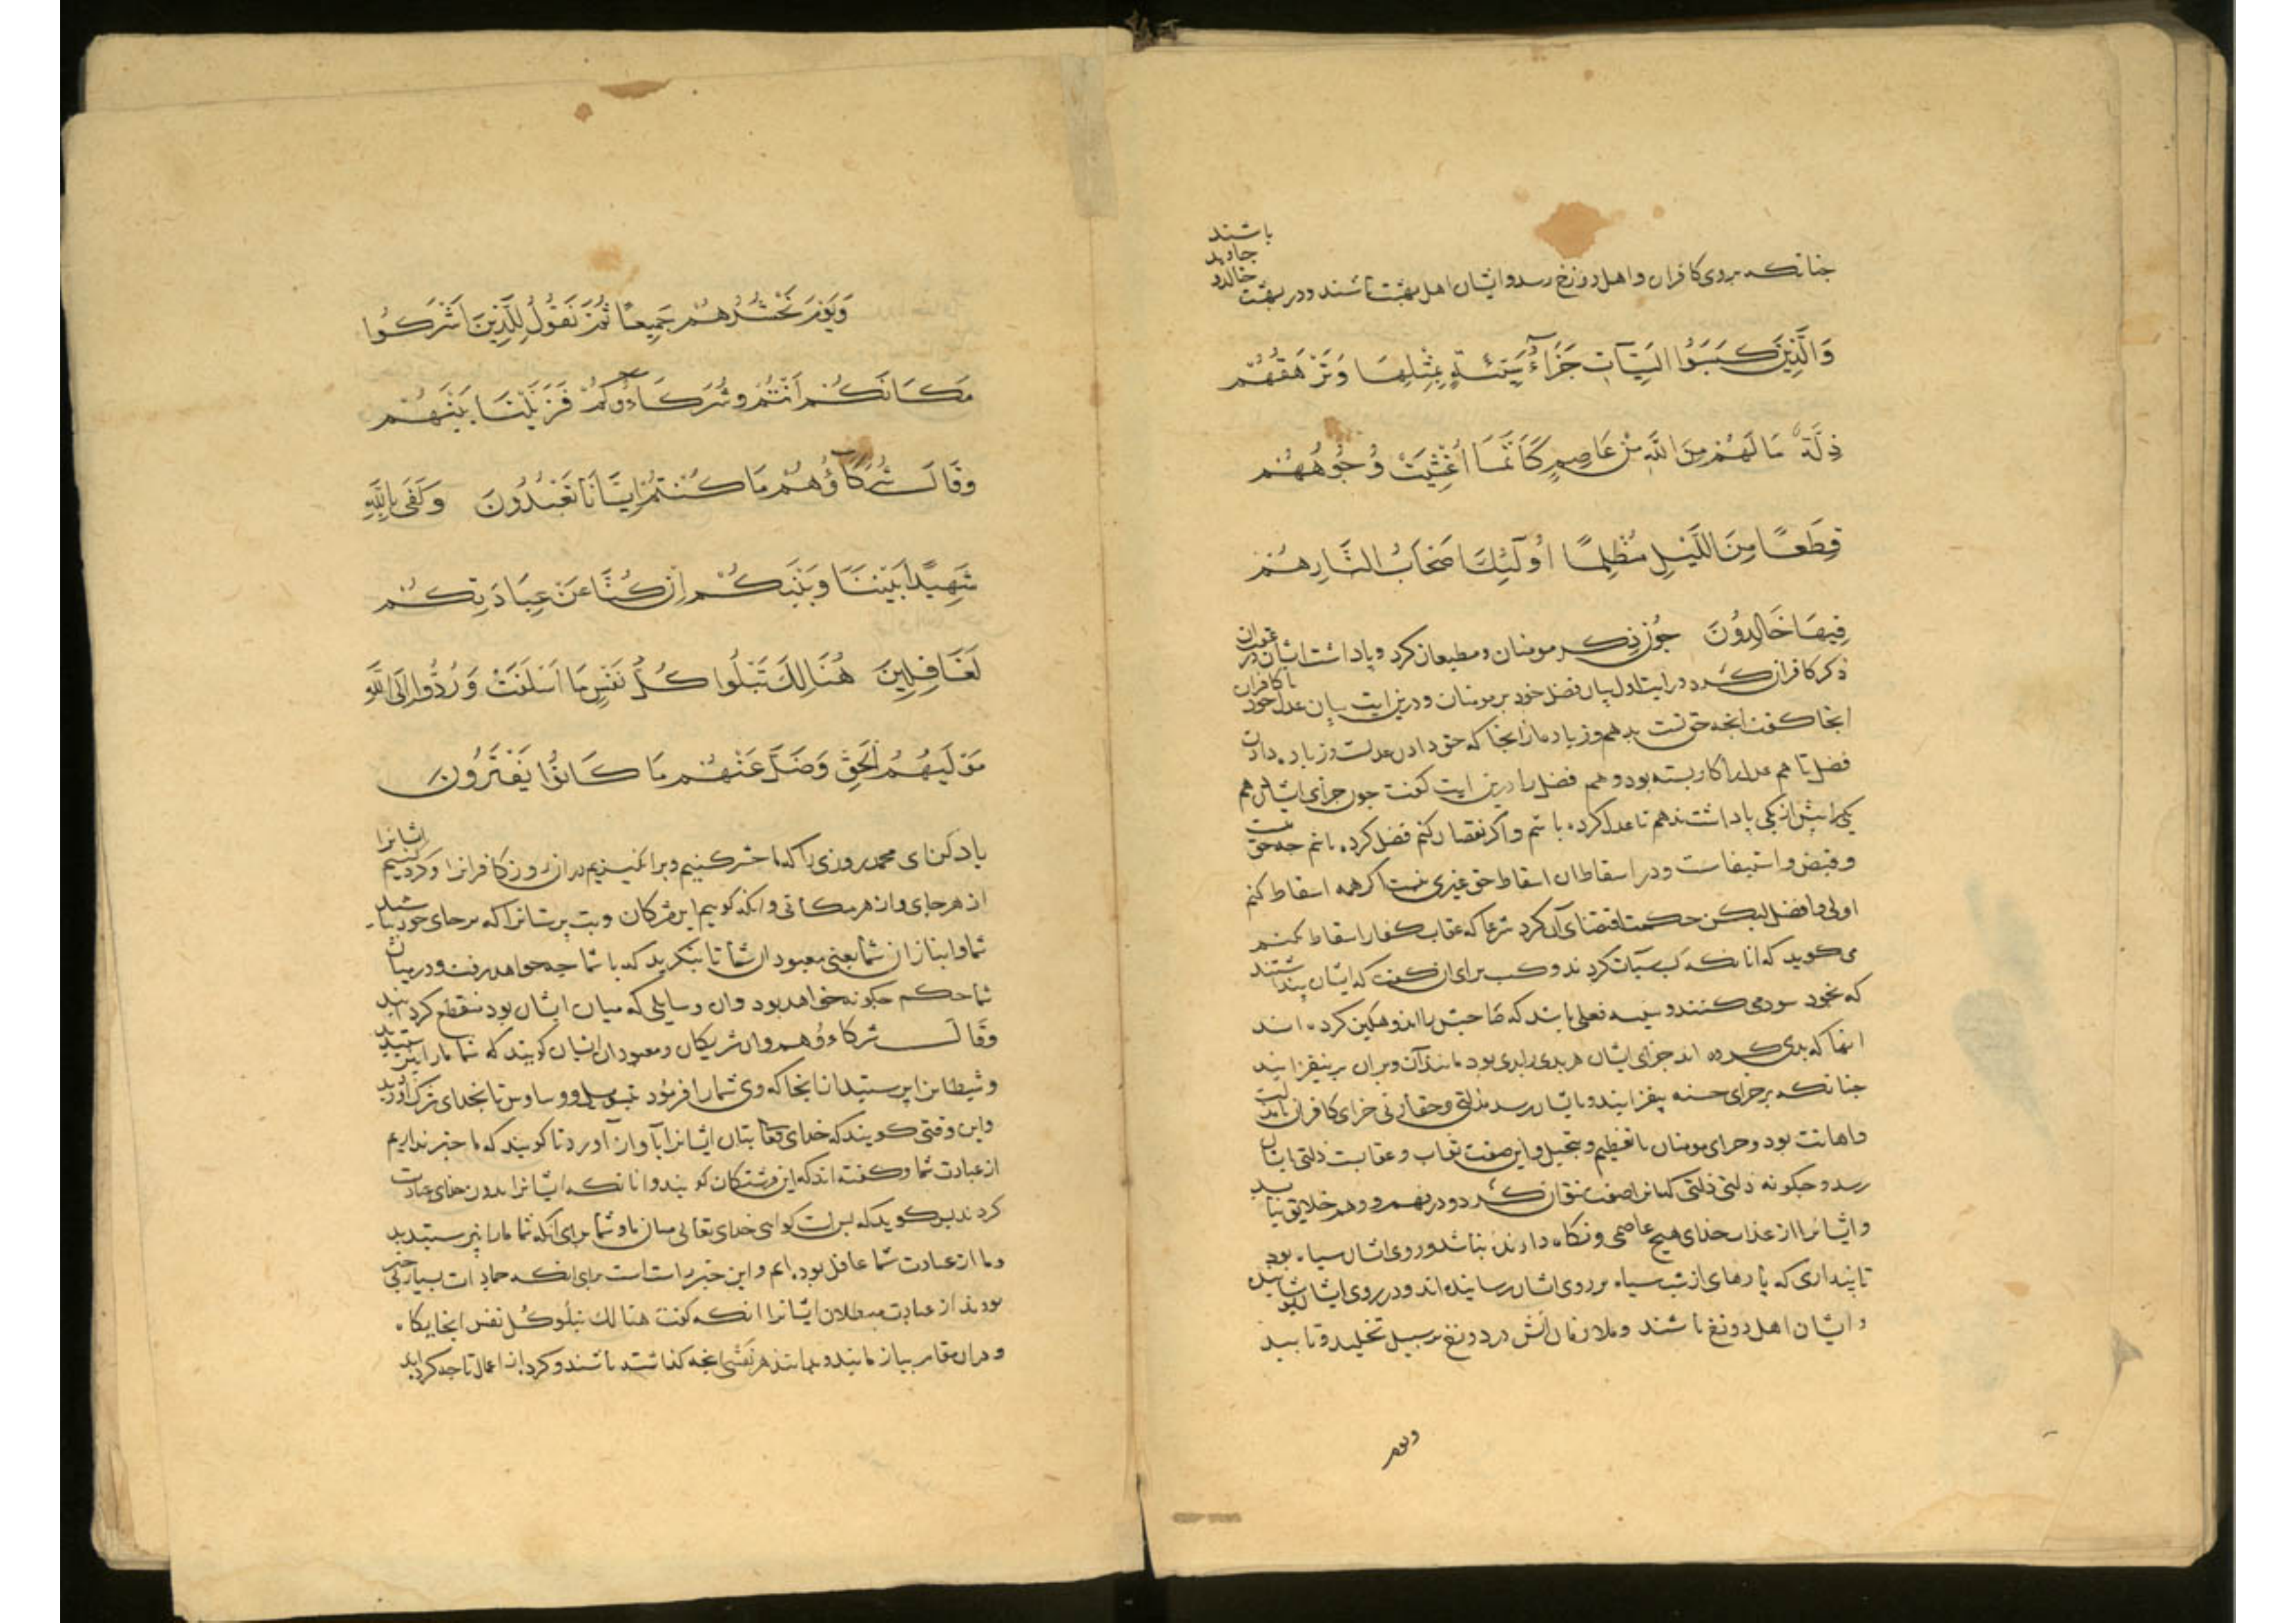 باشند
جاوید
خالدو
جنانکه بروی کافران و اهل دوزخ رسد و ایشان اهل بهشت باشند و در بهشت
وَالَّذِینَ کَسَبَوُا السَیِّآتِ جَزَآءُ سَیِّئَةٍ بِمِثْلِهَا وَتَرْهَقُهُمْ
ذِلَّةٌ مَا لَهُمْ مِنَ اللَّهِ مِنْ عَاصِمٍ کَاَنَّمَا اُغْشِیَتْ وُجُوهُهُمْ
قِطَعًا مِنَ اللَّیْلِ مُظْلِمًا اُولَئِکَ اَصْحَابُ النَّارِ هُمْ
فِیهَا خَالِدُونَ جون ذکر مومنان و مطیعان کرد و پاداشت ایشان در عقب ان
ذکر کافران کرد در ایت اول بیان فضل خود بر مومنان و درین ایت بیان عدل خود با کافران
انجا کفت انجه حق تست بدهم و زیاده از انجا که حق دادن عدلست و زیاده دادن
فضل تا هم عدل را کار بسته بود و هم فضل را درین ایت کفت جون جزای ایشان هم
یکی را بیش از یکی پاداشت ندهم تا عدل کرده باشم و اکر نقصان کنم فضل کرده باشم جه حق منست
و قبض و استیفاست و در اسقاط ان اسقاط حق غیری نیست اکر همه اسقاط کنم
اولی و افضل لیکن حکمت اقتضای آن کرد شرعا که عقاب کفار اسقاط نکنم
می کوید که انانکه کسب سیآت کردند و کسب برای ان کفت که ایشان پنداشتند
که بخود سود می کنند و سیئه فعلی باشد که صاحبش را اندوهکین کرده اند
انها که بدی کرده اند جزای ایشان هر بدی را بدی بود مانند آن و بران بر نیفزایند
جنانکه بر جزای حسنه بیفزایند و بایشان رسد مذلتی و حقارتی جزای کافران با مذلت
و اهانت بود و جزای مومنان با تعظیم و تبجیل و این صفت ثواب و عقابست ذلتی ایشان
رسد و جکونه ذلتی ذلتی که انرا صفت نتوان کرد و در فهم و وهم خلایق نیاید
و ایشانرا از عذاب خدای هیج عاصمی و نکاه دارنده نباشد و روی ایشان سیاه بود
تا پنداری که پارهای از شب سیاه بر روی ایشان رسانیده اند و در روی ایشان پوشانیده
و ایشان اهل دوزخ باشند و ملازمان آتش در دوزخ بر سبیل تخلید و تابید
ویوم
وَیَوْمَ نَحْشُرُهُمْ جَمِیعًا ثُمَّ نَقُولُ لِلَّذِینَ اَشْرَکُوا
مَکَانَکُمْ اَنْتُمْ وَشُرَکَاؤُکُمْ فَزَیَّلْنَا بَیْنَهُمْ
وَقَالَ شُرَکَاؤُهُمْ مَا کُنْتُمْ اِیَّانَا تَعْبُدُونَ وَکَفَی بِاللَّهِ
شَهِیدًا بَیْنَنَا وَبَیْنَکُمْ اِنْ کُنَّا عَنْ عِبَادَتِکُمْ
لَغَافِلِینَ هُنَالِکَ تَبْلُوا کُلُّ نَفْسٍ مَا اَسْلَفَتْ وَرُدُّوا اِلَی اللَّهِ
مَوْلَیهُمُ الْحَقِّ وَضَلَّ عَنْهُمْ مَا کَانُوا یَفْتَرُونَ
یاد کن ای محمد روزی را که ما حشر کنیم و برانکیزیم دران روز کافرانرا و کرد کنیم ایشانرا
از هر جای و از هر مکانی و انکه کوییم این مشرکان و بت پرستانرا که بر جای خود باشید
شما و انبازان شما یعنی معبودان شما تا بنکرید که با شما جه خواهد رفت و در میان
شما حکم جکونه خواهد بود و ان وسایلی که میان ایشان بود منقطع کردانید
وَقَالَ شرکاؤُهم و ان شریکان و معبودان ایشان کویند که شما مارا نپرستیدید
و شیطانرا پرستیدید از انجا که وی شمارا فرمود و وساوس تا بخدای شرک آوردید
و این وقتی کویند که خدای تعالی بتان ایشانرا بآواز آورد تا کویند که ما خبر نداریم
از عبادت شما و کفته اند که این فرشتکان کویند و انانکه ایشانرا بدون خدای عبادت
کردند پس کوید که بس است کواهی خدای تعالی میان ما و شما برای آنکه شما مارا نپرستیدید
و ما از عبادت شما غافل بوده ایم و این خبر راست است برای انکه جمادات بسیار بی خبر
بودند از عبادت مبطلان ایشانرا انکه کفت هنالک تبلُو کُل نفس انجایکاه
و دران مقام بیازمایند و بدانند هر نفسی انجه کذاشته باشند و کرده از اعمال تا جه کرده اند